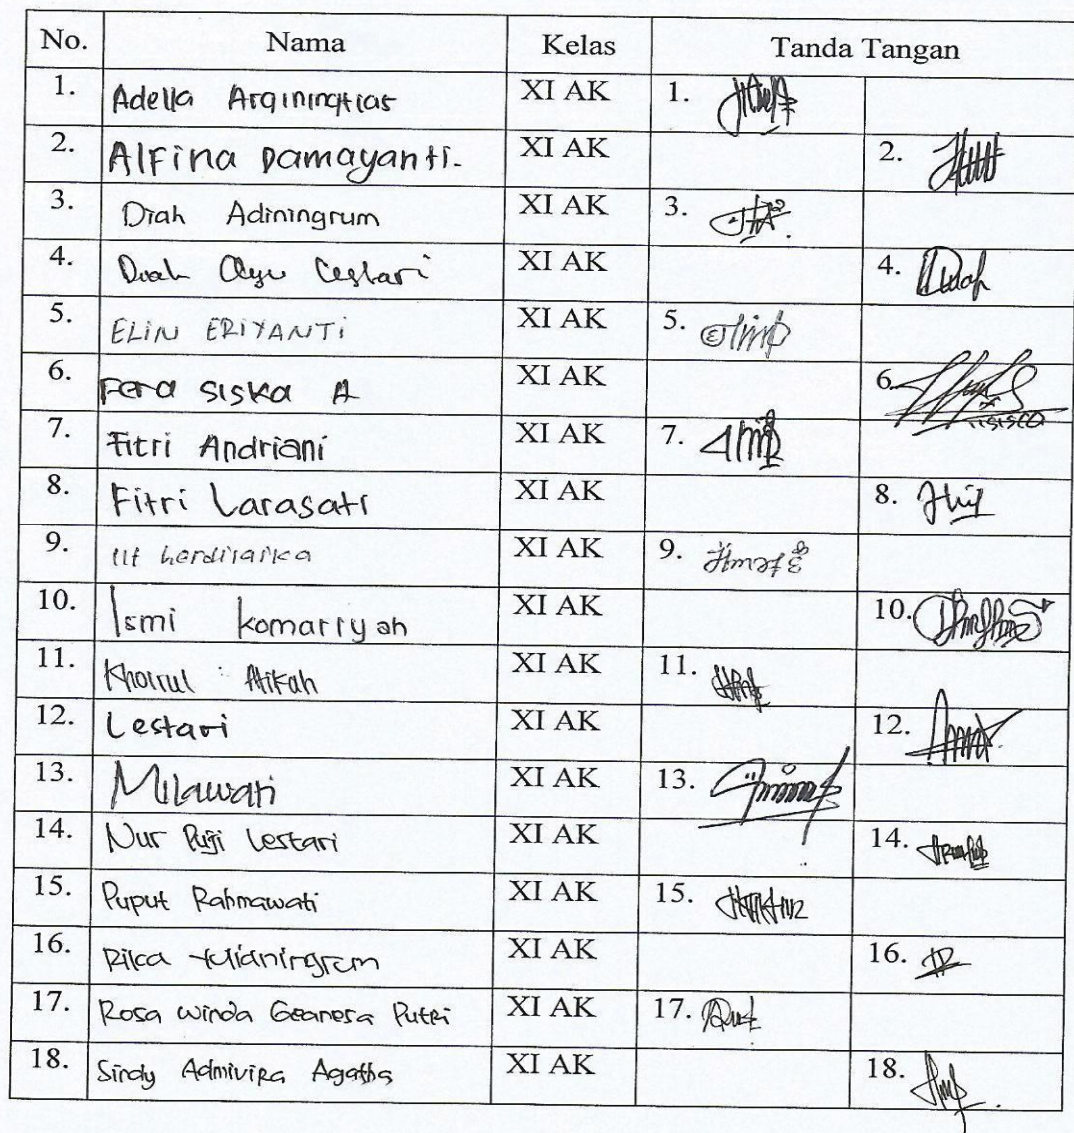 No. Nama Kelas Tanda Tangan
1. Adella Arginingtias XI AK 1.
2. Alfina Damayanti. XI AK 2.
3. Diah Adiningrum XI AK 3.
4. Diah Ayu Lestari XI AK 4.
5. ELIN ERIYANTI XI AK 5.
6. Fera siska A XI AK 6.
7. Fitri Andriani XI AK 7.
8. Fitri Larasati XI AK 8.
9. XI AK 9.
10. Ismi komariyah XI AK 10.
11. Khoirul Atikah XI AK 11.
12. Lestari XI AK 12.
13. Milawati XI AK 13.
14. Nur Puji Lestari XI AK 14.
15. Puput Rahmawati XI AK 15.
16. Rika Yulianingrum XI AK 16.
17. Rosa Winda Geanosa Putri XI AK 17.
18. Sindy Admivira Agatha XI AK 18.